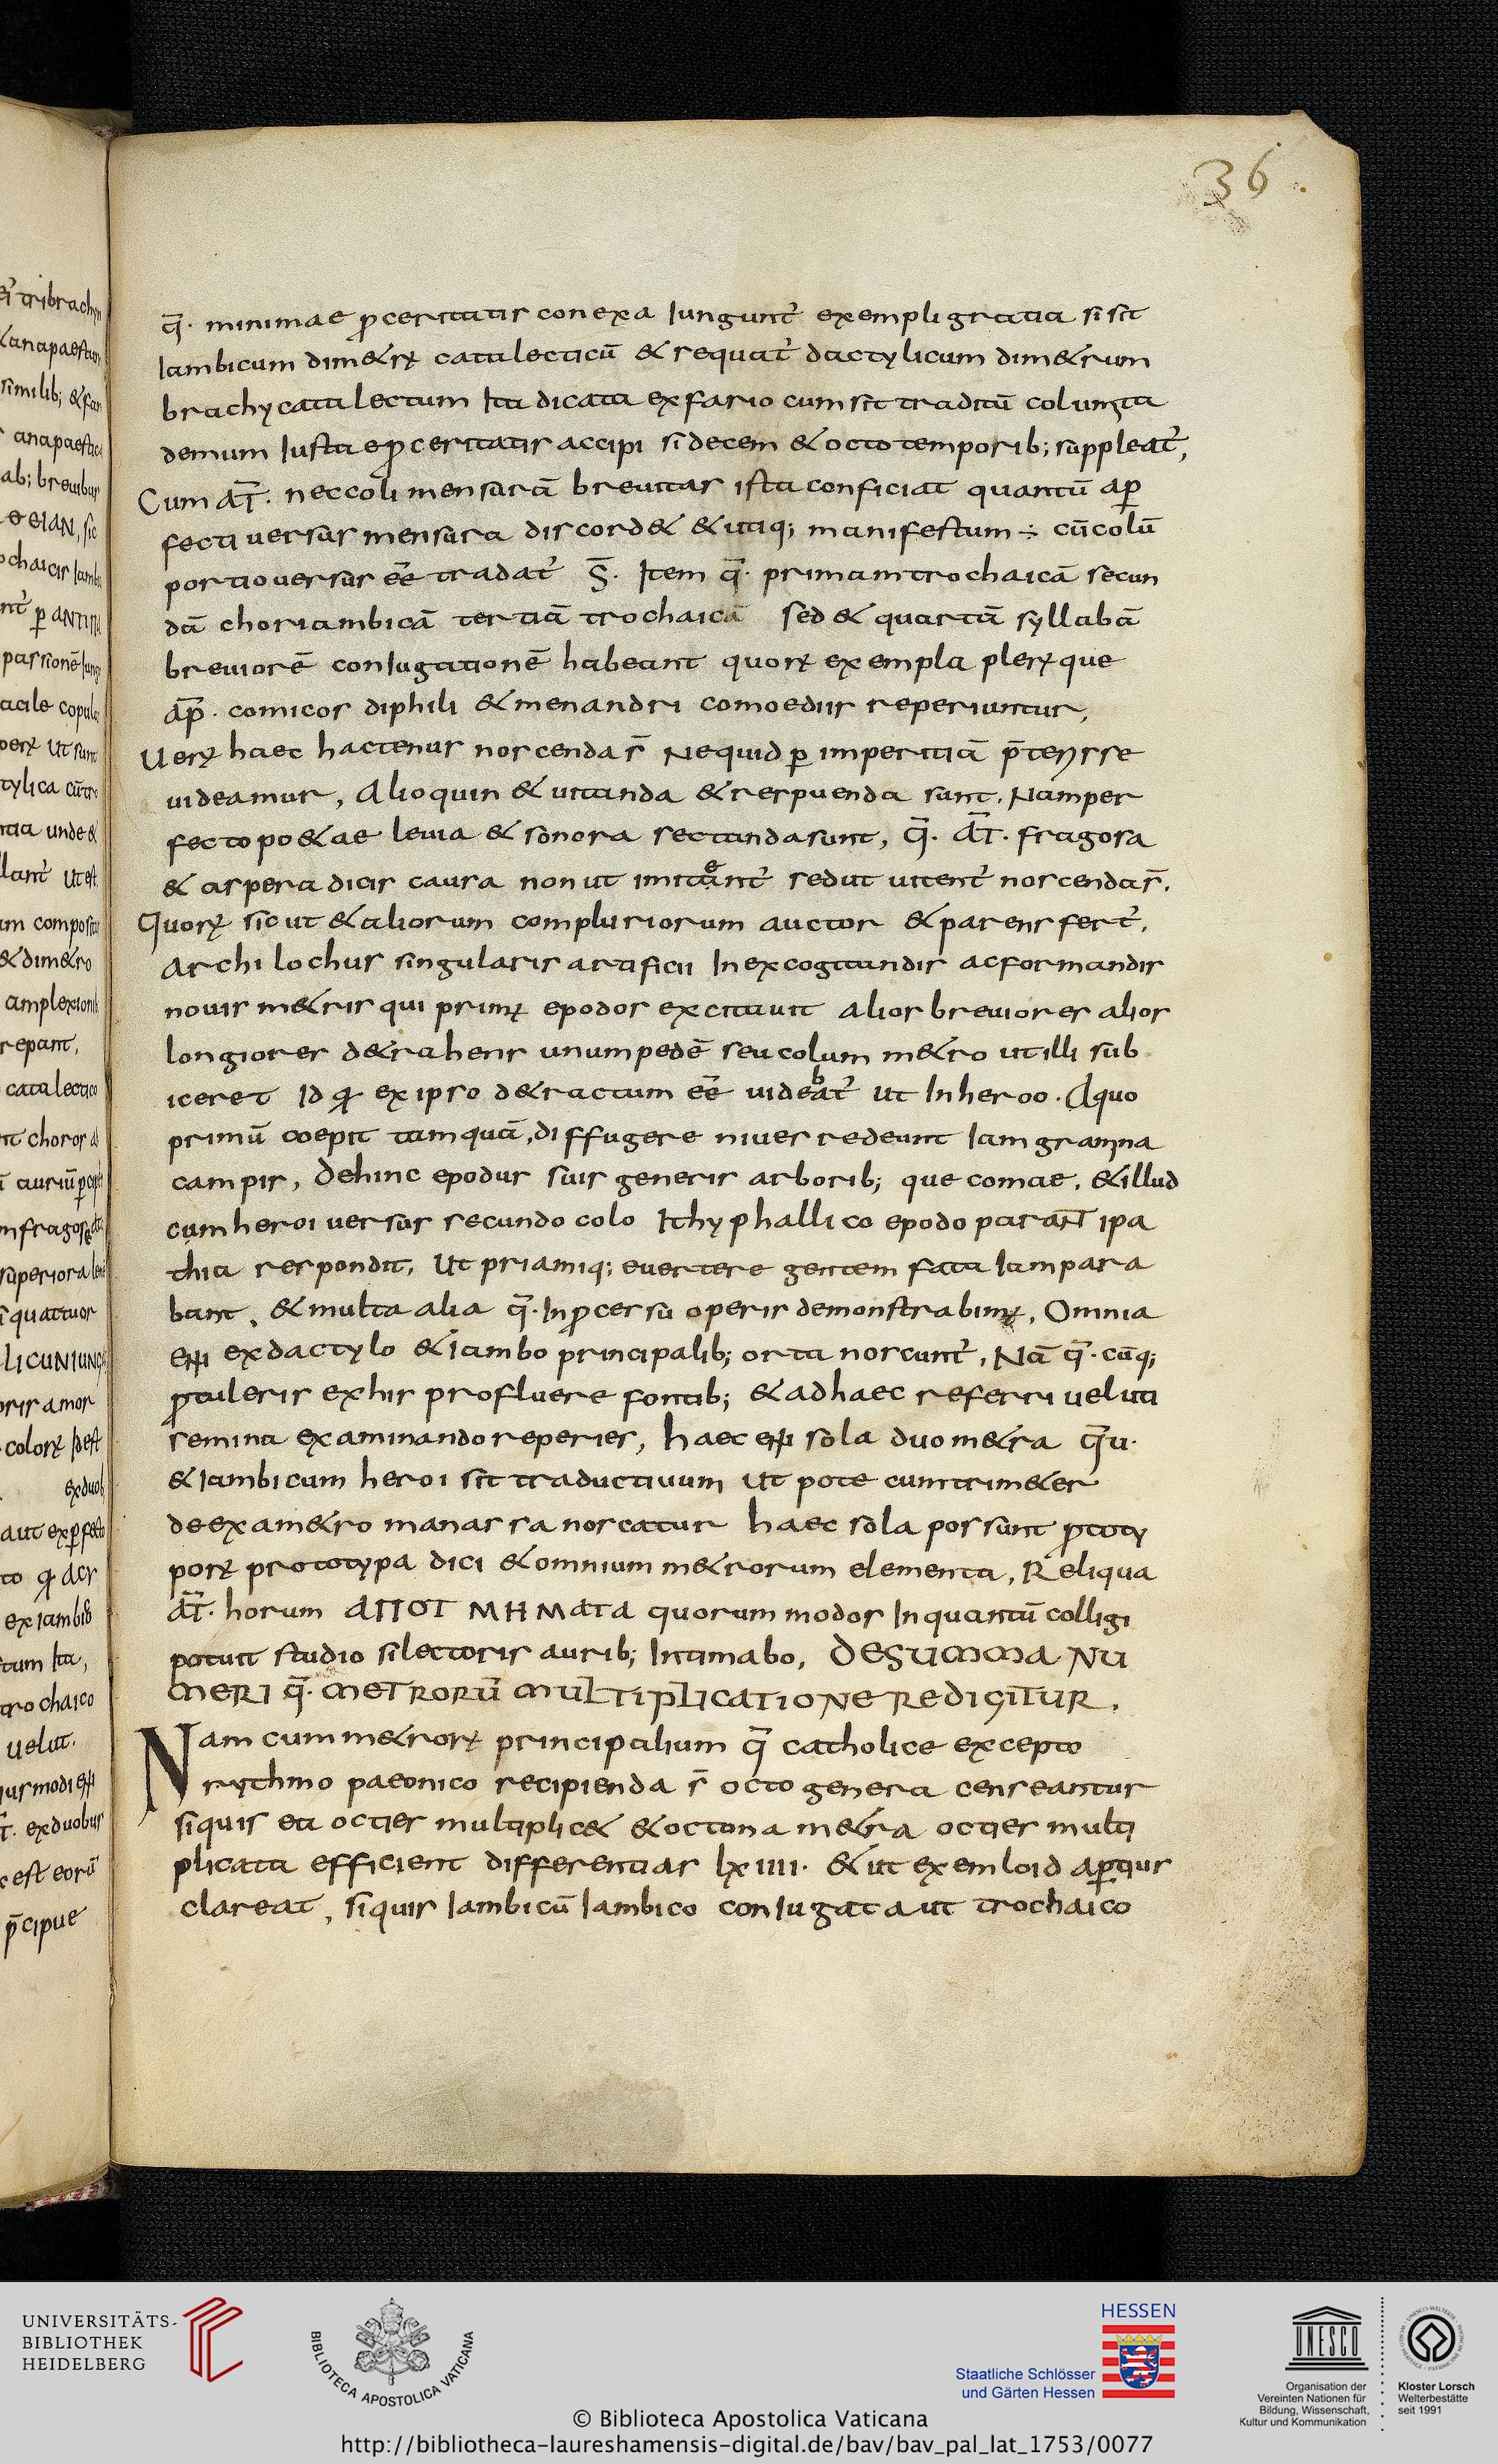 36
q̄. minimae ꝓceritatis conexa Iungunt̄ exempli gratia si sit
Iambicum dim&rꝝ catalecticū & sequat̄ dactylicum dim&rum
brachycatalectum Ita dicata exfario cum sit traditū colum ita
demum Iustae ꝓceritatis accipi si decem & octo temporib; suppleat̄,
Cum aт̄. nec coli mensurā breuitas ista conficiat quantū aꝑ
fecti uersus mensura discord& & utiq; manifestum ÷ cū colū
portio uersus eē tradat̄ S̄. Item q̄. primam trochaicā secun
dā choriambicā tertiā trochaicā sed & quartā syllabā
breuiorē coniugationē habeant quorꝝ exempla plerꝝque
ap̄. comicos diphili & menandri comoediis reperiuntur,
Uerꝝ haec hactenus noscenda s̄ Ne quid ꝑ imperitiā p̄terisse
uideamur, Alioquin & uitanda & respuenda sunt. Nam per
fecto po&ae leuia & sonora sectanda sunt, q̄. aт̄. fragosa
& aspera dicis causa non ut imitaent̄ sed ut uitent̄ noscenda s̄.
Quorꝝ sicut & aliorum compluriorum auctor & parens fert̄.
Archilochus singularis artificii In excogitandis ac formandis
nouis m&ris qui primꝝ epodos excitauit alios breuiores alios
longiores d&rahens unum pedē seu colum m&ro ut illi sub
iceret Id ꝙ ex ipso d&ractum eē uidebat̄ ut In heroo. A quo
primū coepit tamquā, diffugere niues redeunt Iam gramina
campis, Dehinc epodus suis generis arborib; que comae, & illud
cum heroi uersus secundo colo Ithyphallico epodo parant ipa
thia respondit, Ut priamiq; euertere gentem fata Iam para
bant, & multa alia q̄. In ꝓcessu operis demonstrabimꝝ, Omnia
enī ex dactylo & iambo principalib; orta noscunt̄, Nā q̄. cūq;
ꝓtuleris ex his profluere fontib; & ad haec referri ueluti
semina examinando reperies, haec enī sola duo m&ra q̄u.
& Iambicum heroi sit traductiuum Ut pote cum trim&er
de exam&ro manassa noscatur haec sola possunt ꝓtoty
porꝝ prototypa dici & omnium m&rorum elementa, Reliqua
aт̄. horum AΠOT MHMATA quorum modos In quantū colligi
potuit studio si lectoris aurib; Intimabo, DE SUMMA NU
MERI q̄. METRORŪ MULTIPLICATIONE REDIGITUR.
Nam cum m&rorꝝ principalium q̄ catholice excepto
rythmo paeonico recipienda s̄ octo genera censeantur
si quis ea octies multiplic& & octona m&ra octies multi
plicata efficient differentias lxiiii. & ut exemloid aꝑtius
clareat, si quis Iambicū Iambico coniugat aut trochaico
UNIVERSITÄTS-
BIBLIOTHEK
HEIDELBERG
BIBLIOTECA APOSTOLICA VATICANA
HESSEN
Staatliche Schlösser
und Gärten Hessen
UNESCO
Organisation der
Vereinten Nationen für
Bildung, Wissenschaft,
Kultur und Kommunikation
Kloster Lorsch
Welterbestätte
seit 1991
© Biblioteca Apostolica Vaticana
http://bibliotheca-laureshamensis-digital.de/bav/bav_pal_lat_1753/0077